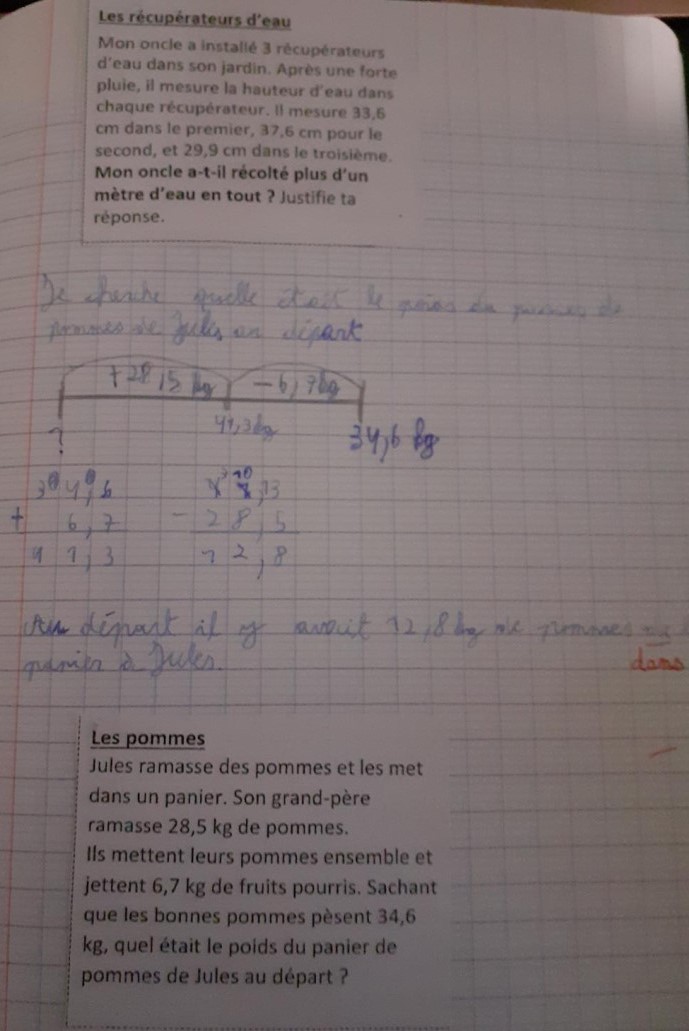 Les récupérateurs d'eau
Mon oncle a installé 3 récupérateurs
d'eau dans son jardin. Après une forte
pluie, il mesure la hauteur d'eau dans
chaque récupérateur. Il mesure 33,6
cm dans le premier, 37,6 cm pour le
second, et 29,9 cm dans le troisième.
Mon oncle a-t-il récolté plus d'un
mètre d'eau en tout ? Justifie ta
réponse.
Je cherche quelle était le poids du panier de
pommes de Jules au départ
+28,5 kg -6,7kg
? 41,3kg 34,6 kg
34,6
+ 6,7 - 28,5
41,3 12,8
Au départ il y avait 12,8 kg de pommes
dans
panier à Jules.
Les pommes
Jules ramasse des pommes et les met
dans un panier. Son grand-père
ramasse 28,5 kg de pommes.
Ils mettent leurs pommes ensemble et
jettent 6,7 kg de fruits pourris. Sachant
que les bonnes pommes pèsent 34,6
kg, quel était le poids du panier de
pommes de Jules au départ ?